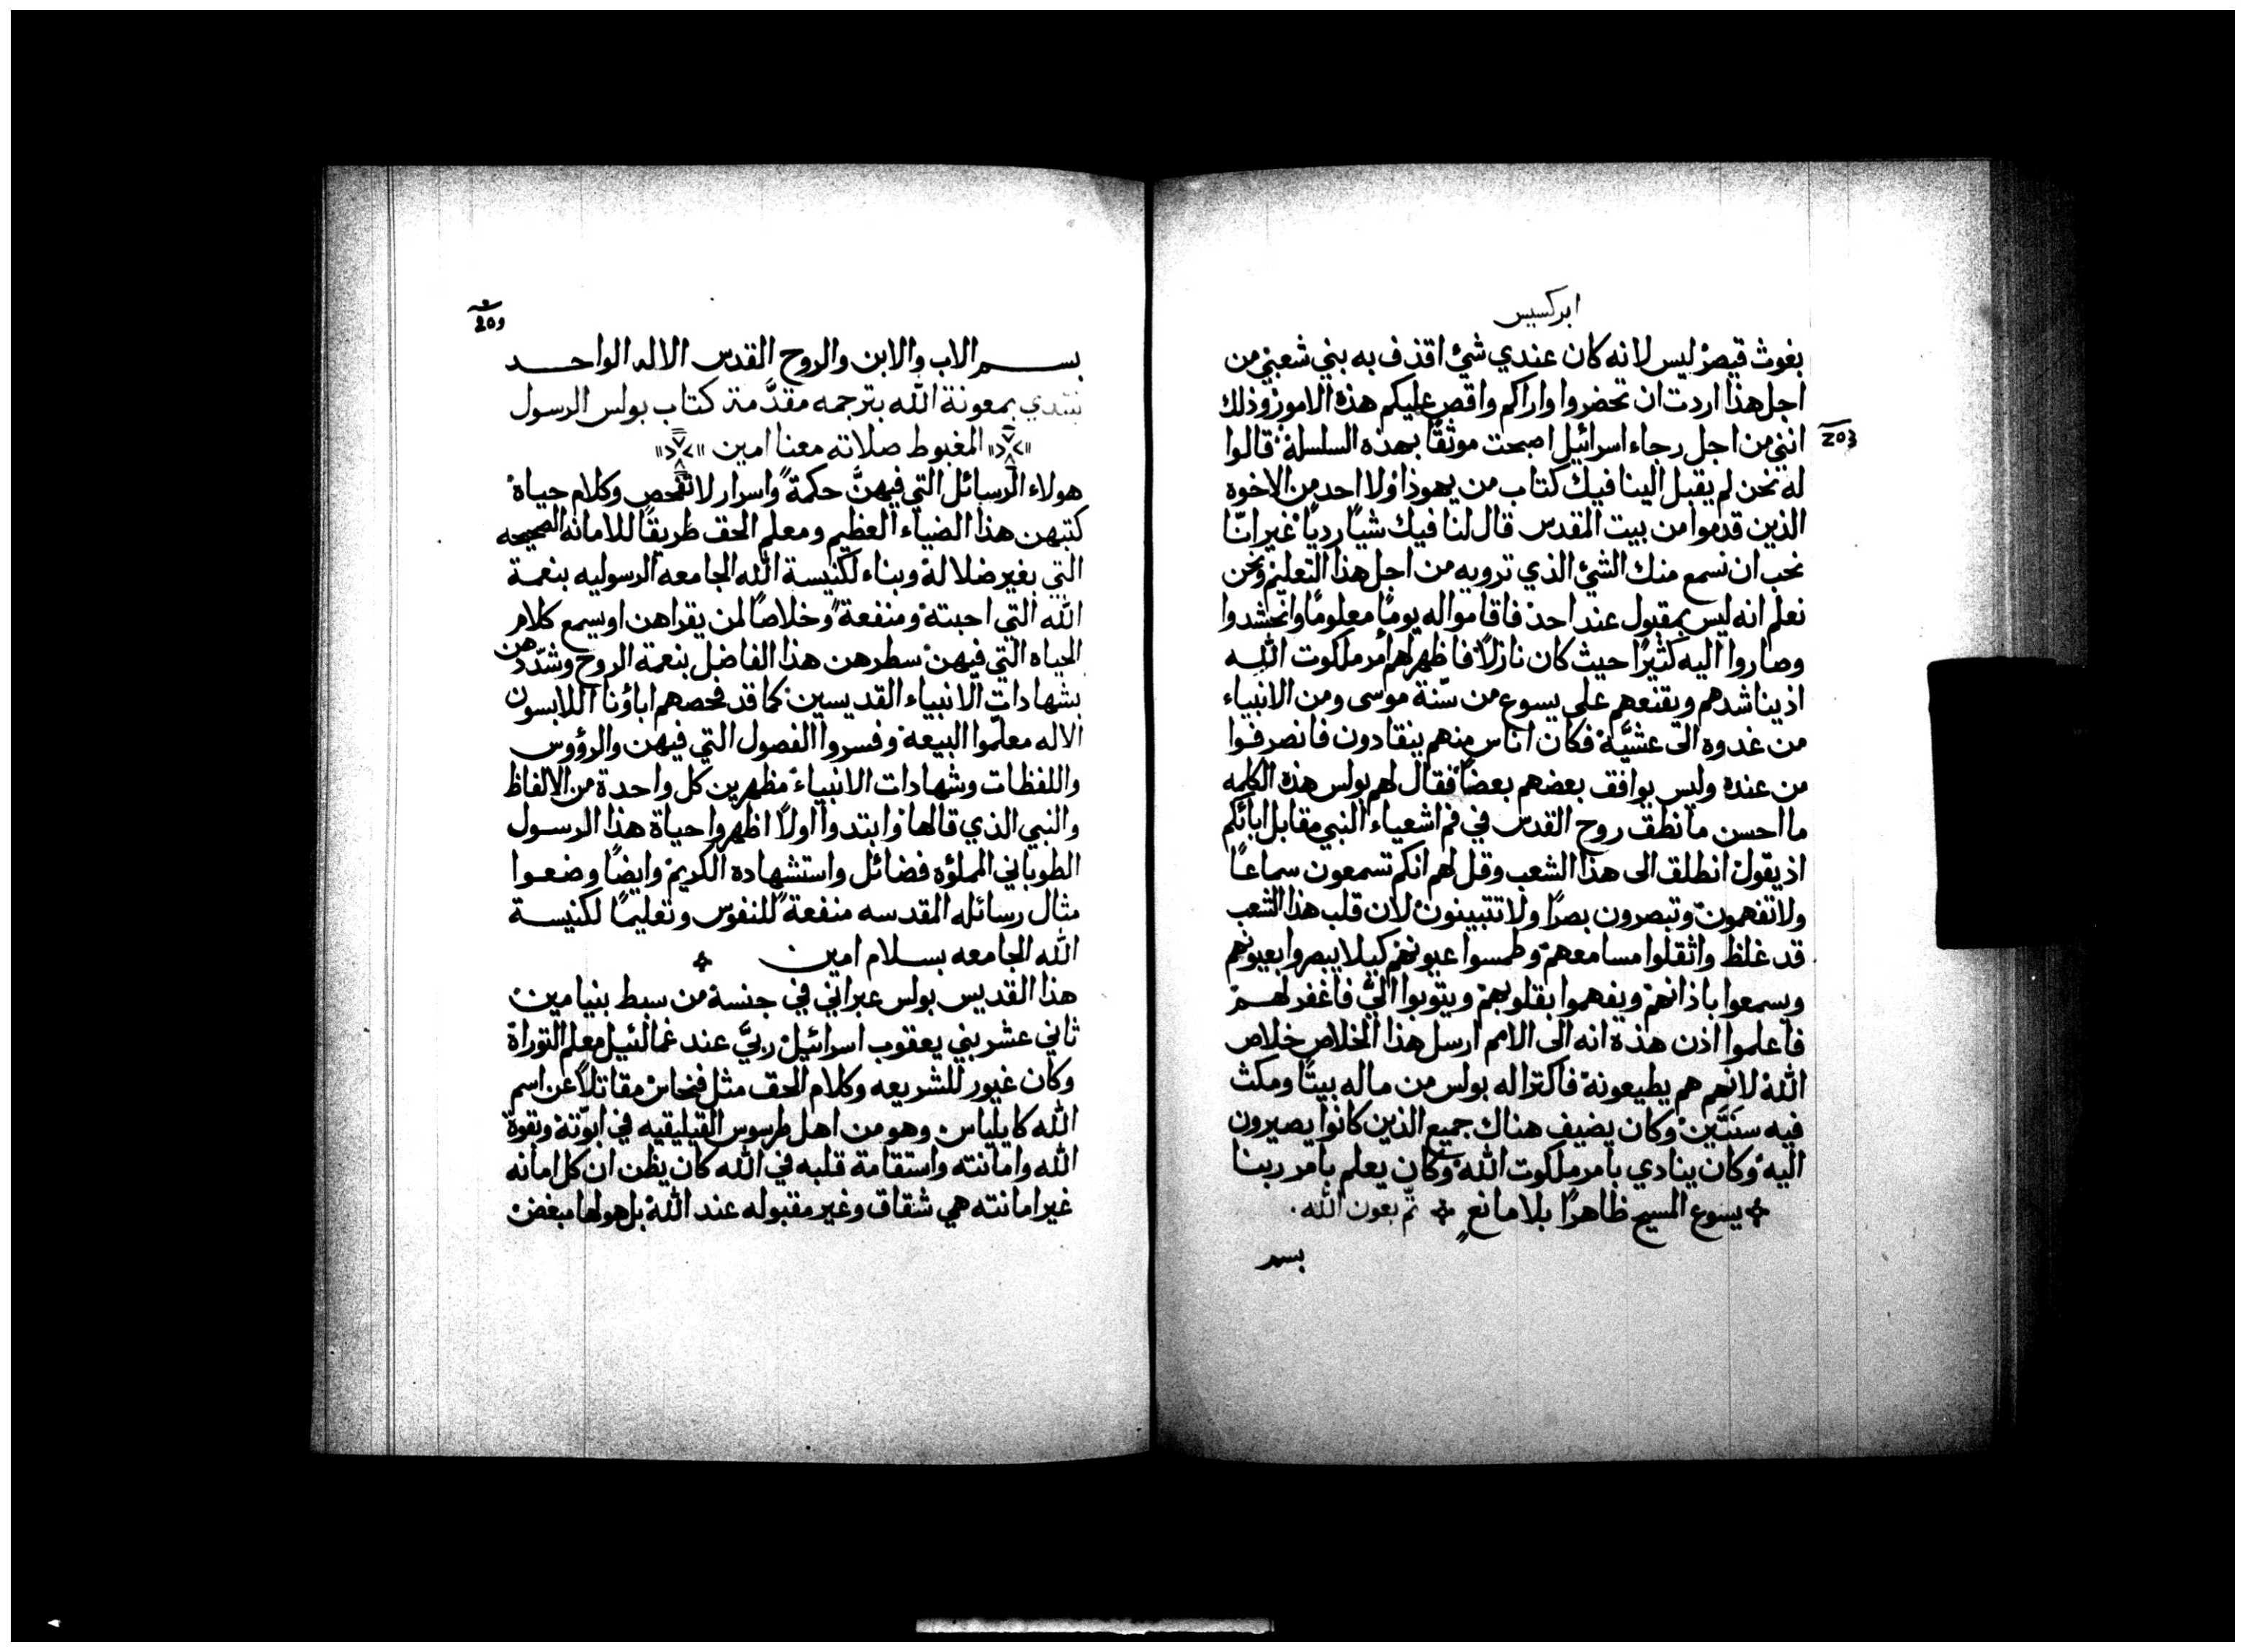 ابركسيس
بغوث قيصر ليس لانه كان عندي شئ اقذف به بني شعبي من
اجل هذا اردت ان تحضروا واراكم واقص عليكم هذه الامور وذلك
انني من اجل رجاء اسرائيل اصبحت موثقًا بهذه السلسلة قالوا
له نحن لم يقبل الينا فيك كتاب من يهوذا ولا احد من الاخوه
الذين قدموا من بيت المقدس قال لنا فيك شيًا رديًا غير انّا
نحب ان نسمع منك الشئ الذي ترويه من اجل هذا التعليم ونحن
نعلم انه ليس بمقبول عند احد فاقاموا له يومًا معلومًا وانحشدوا
وصاروا اليه كثيرًا حيث كان نازلًا فاظهر لهم امر ملكوت الله
اذ يناشدهم ويقنعهم على يسوع من سنّة موسى ومن الانبياء
من غدوه الى عشيّة فكان اناس منهم ينقادون فانصرفوا
من عنده وليس يوافق بعضهم بعضًا فقال لهم بولس هذه الكلمه
ما احسن ما نطق روح القدس في فم اشعياء النبي مقابل ابائكم
اذ يقول انطلق الى هذا الشعب وقل لهم انكم تسمعون سماعًا
ولا تفهمون وتبصرون بصرًا ولا تتبينون لان قلب هذا الشعب
قد غلظ واثقلوا مسامعهم وطمسوا عيونهم كيلا يبصروا بعيونهم
ويسمعوا باذانهم ويفهموا بقلوبهم ويتوبوا اليّ فاغفر لهم
فاعلموا اذن هذه انه الى الامم ارسل هذا الخلاص خلاص
الله لانهم هم يطيعونه فاكترا له بولس من ماله بيتًا ومكث
فيه سنَتَين وكان يضيف هناك جميع الذين كانوا يصيرون
اليه وكان ينادي بامر ملكوت الله وكان يعلم بامر ربنا
يسوع المسيح ظاهرًا بلا مانع تمّ بعون الله
بسم
بسم الاب والابن والروح القدس الاله الواحد
نبتدي بمعونة الله بترجمه مقدَّمة كتاب بولس الرسول
المغبوط صلاته معنا امين
هولاء الرسائل التي فيهنّ حكمةً واسرار لا تفحص وكلام حياة
كتبهن هذا الضياء العظيم ومعلم الحق طريقًا للامانه الصحيحه
التي بغير ضلالة وبناء لكنيسة الله الجامعه الرسوليه بنعمة
الله التي احبته ومنفعةً وخلاصًا لمن يقراهن او يسمع كلام
الحياه التي فيهن سطرهن هذا الفاضل بنعمة الروح وشدّدهن
بشهادات الانبياء القديسين كما قد فحصهم اباؤنا اللابسون
الاله معلموا البيعه وفسروا الفصول التي فيهن والرؤوس
واللفظات وشهادات الانبياء مظهرين كل واحدة من الالفاظ
والنبي الذي قالها وابتدوا اولًا اظهروا حياة هذا الرسول
الطوباني المملؤه فضائل واستشهاده الكريم وايضًا وضعوا
مثال رسائله المقدسه منفعةً للنفوس وتعليمًا لكنيسة
الله الجامعه بسلام امين
هذا القديس بولس عبراني في جنسة من سبط بنيامين
ثاني عشر بني يعقوب اسرائيل ربيَّ عند غمالئيل معلم التوراة
وكان غيور للشريعه وكلام الحق مثل فنحاس مقاتلًا عن اسم
الله كايلياس وهو من اهل طرسوس القيليقيه في ابوّته وبقوة
الله وامانته واستقامة قلبه في الله كان يظن ان كل امانه
غير امانته هي شقاق وغير مقبوله عند الله بل هو لها مبغض